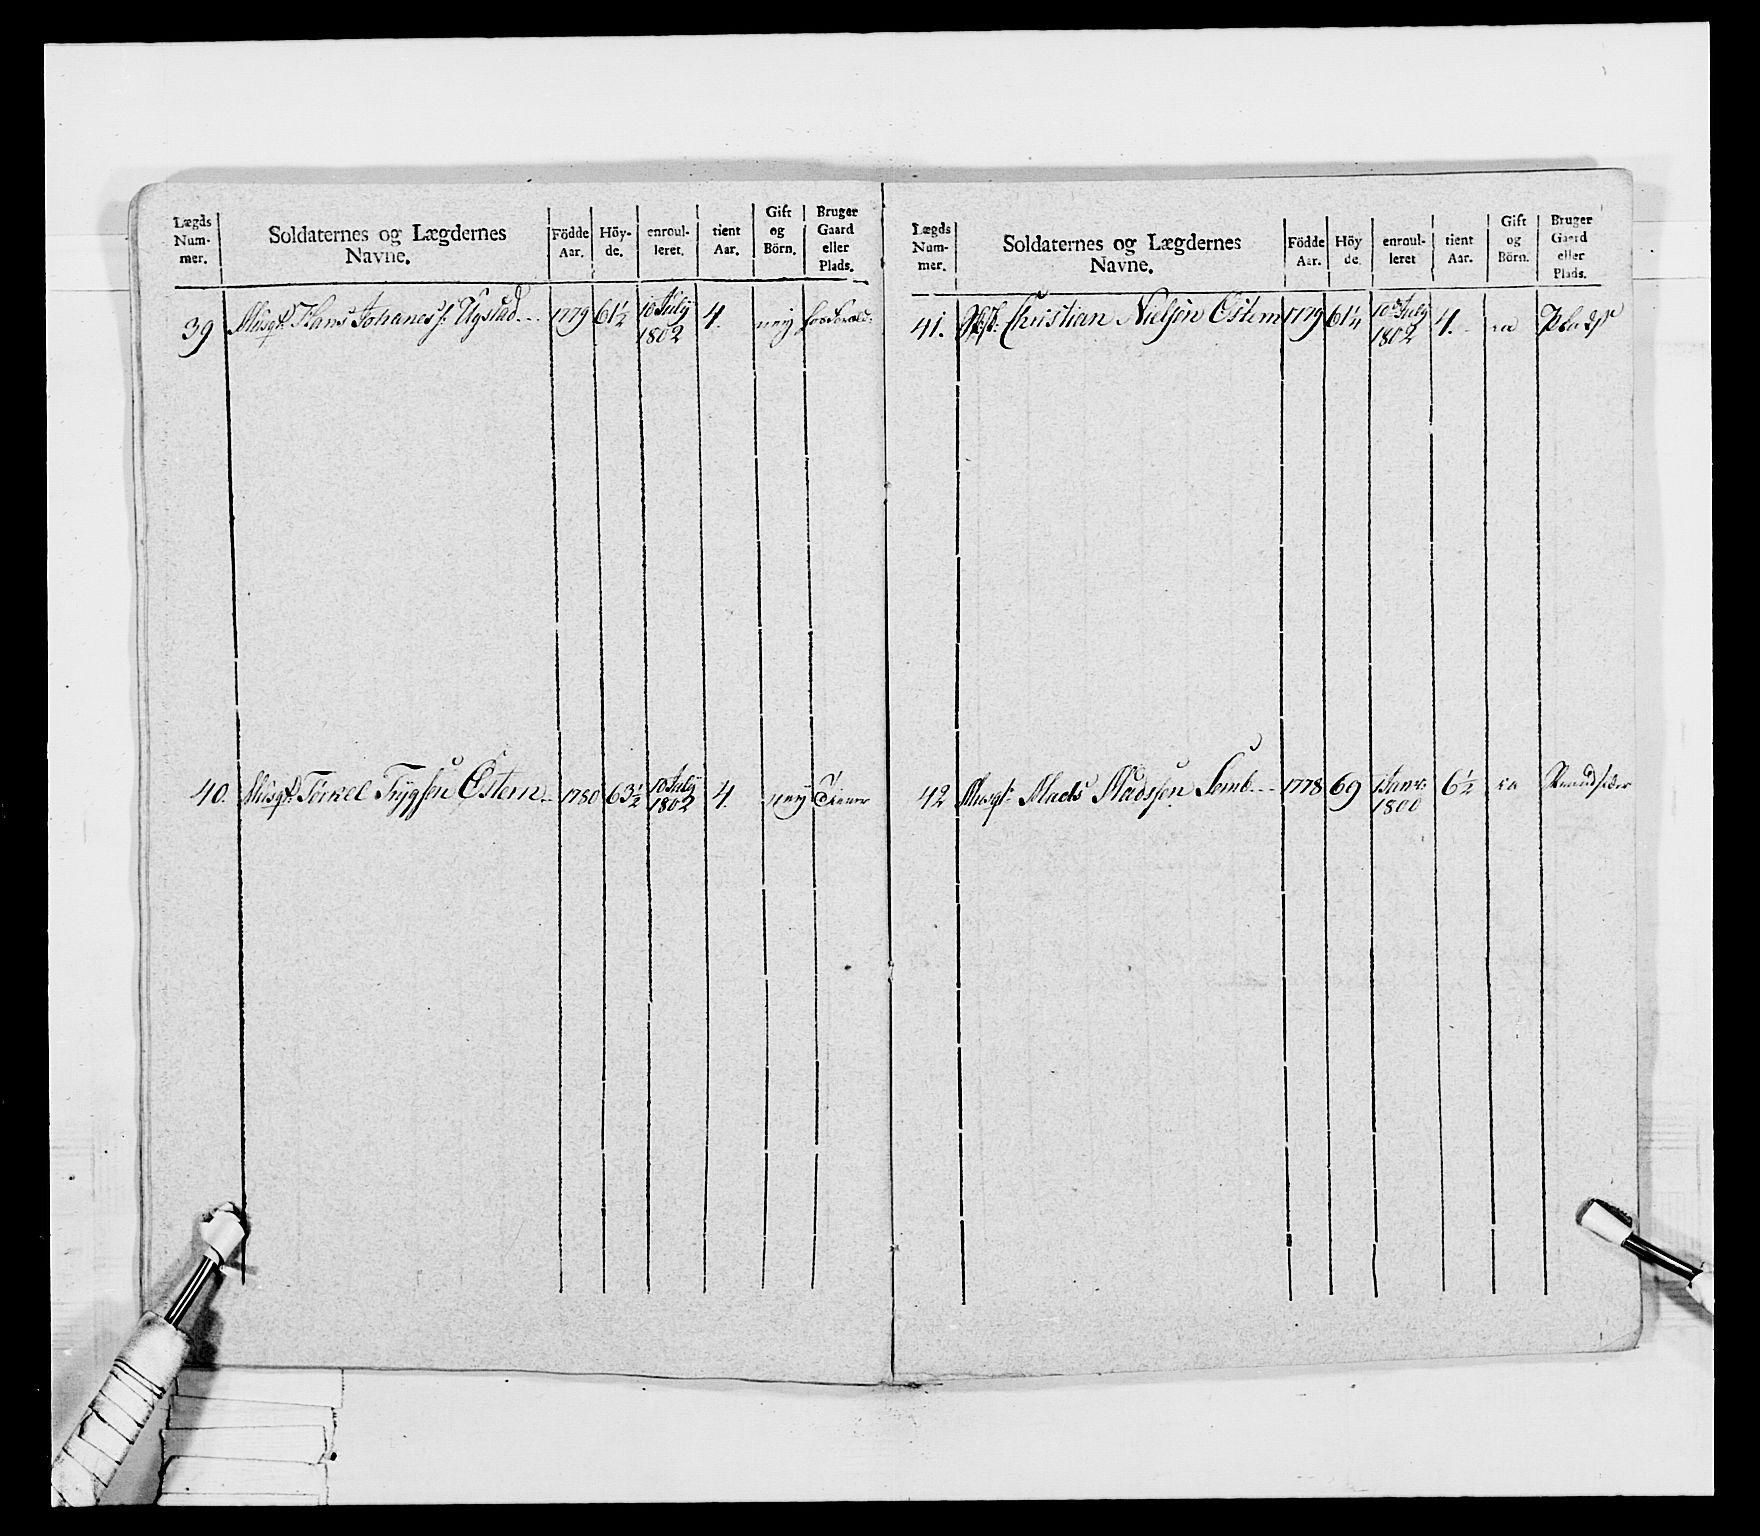 Lægds Num- mer.
Soldaternes og Lægdernes Navne.
Födde Aar.
Höy- de.
enroul- leret.
tient Aar.
Gift og Börn.
Bruger Gaard eller Plads.
39 Musqt. Hans Johanes s: Ugstad 1779 61½ 10 July 1802 4. neij
40. Musqt. Torkel Trygsen Östern 1780 63½ 10 July 1802 4. neij Tiener
Lægds Num- mer.
Soldaternes og Lægdernes Navne.
Födde Aar.
Höy de.
enroul- leret
tient Aar.
Gift og Börn.
Bruger Gaard eller Plads.
41. Christian Nielsön Östern 1779 61¼ 10 July 1802 4. Plads
42 Musqt. Mads Madssön Semb 1778 69 1 Janr: 1800 6½ Strandsider